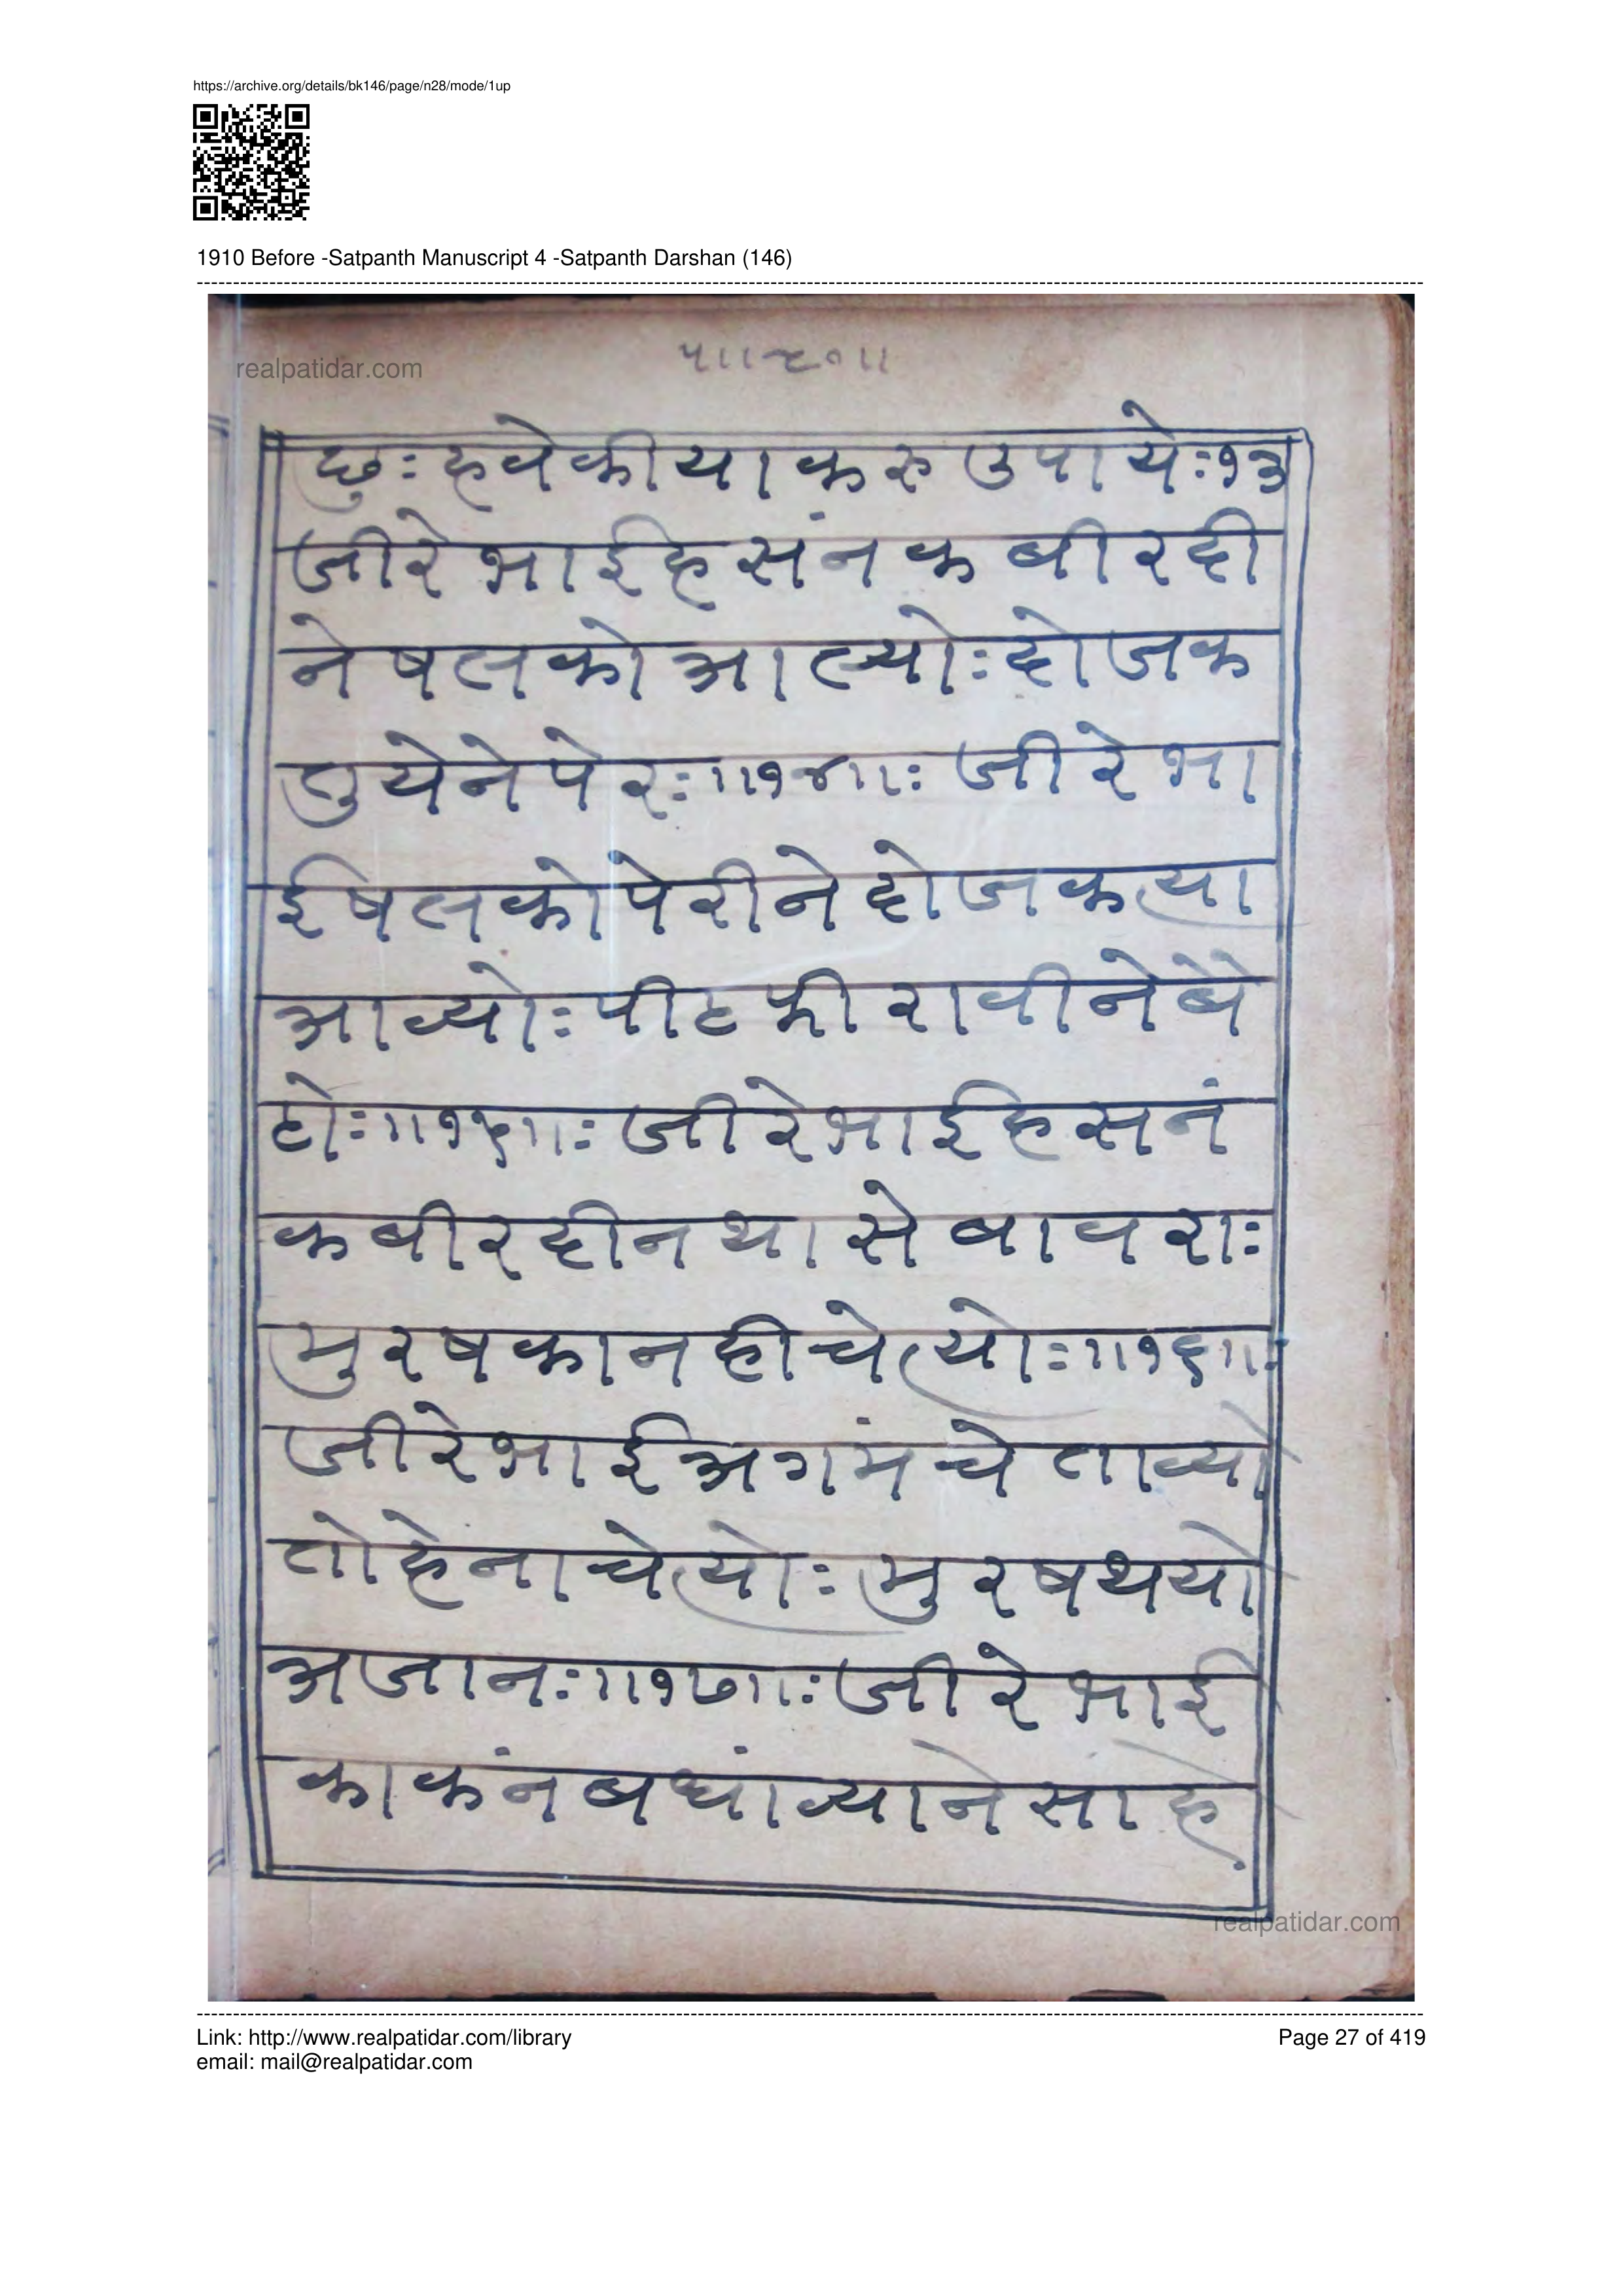 https://archive.org/details/bk146/page/n28/mode/1up
1910 Before -Satpanth Manuscript 4 -Satpanth Darshan (146)
realpatidar.com
छुः हवे कीया करु उपायेः१३
जीरे भाई हसंन कबीरदी
ने षलको आल्योः दोजक
तुयेने पेरः॥१४॥ः जीरे भा
ई षलको पेरीने दोजक त्या
आव्योः पीठ फीरावीने बे
ठोः॥१५॥ः जीरे भाई हसनं
कबीरदीन थासे बावराः
मुरषका नही चेत्योः॥१६॥ः
जीरे भाई अगमं चेताव्यो
तोहे ना चेत्योः मुरष थयो
अजानः॥१७॥ः जीरे भाई
काकंन बधांव्याने साहे
realpatidar.com
Link: http://www.realpatidar.com/library
email: mail@realpatidar.com
Page 27 of 419